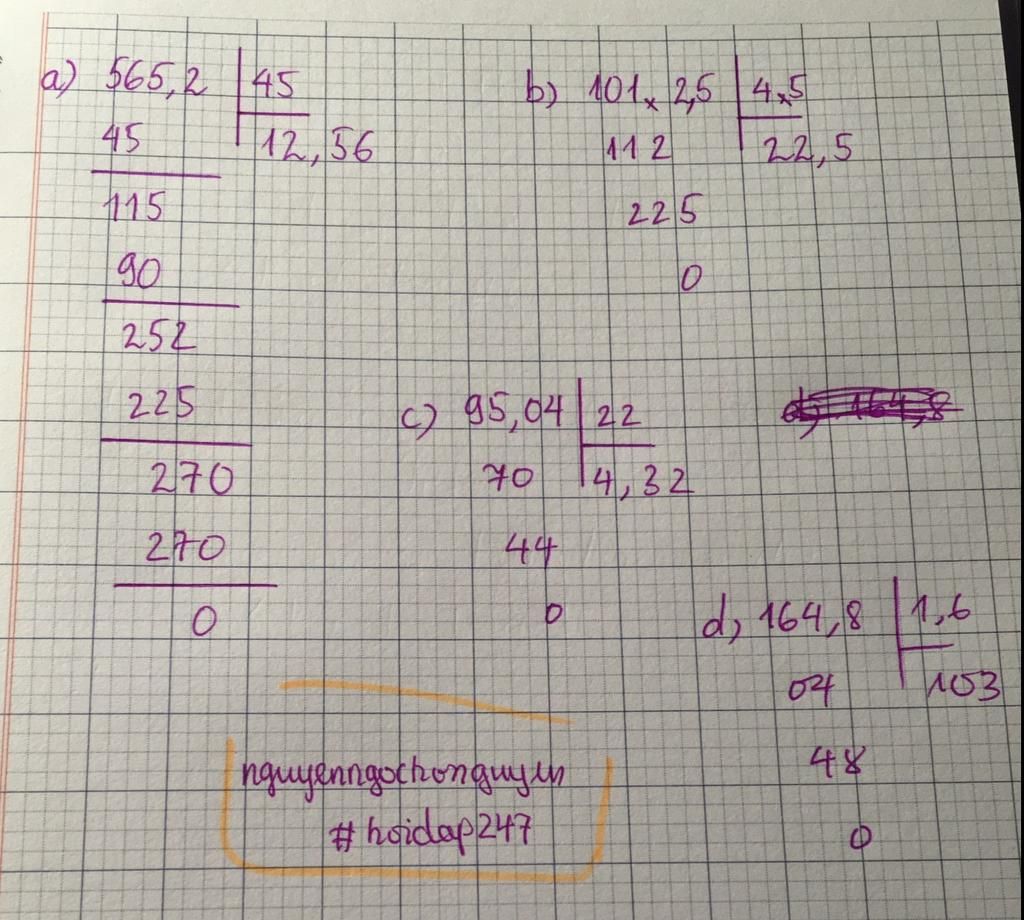 a) 565,2 45
45 12,56
115
90
252
225
270
270
0
b) 101x 2,5 4x5
112 22,5
225
0
c) 95,04 22
70 4,32
44
0
d, 164,8 1,6
04 103
48
0
#hoidap247